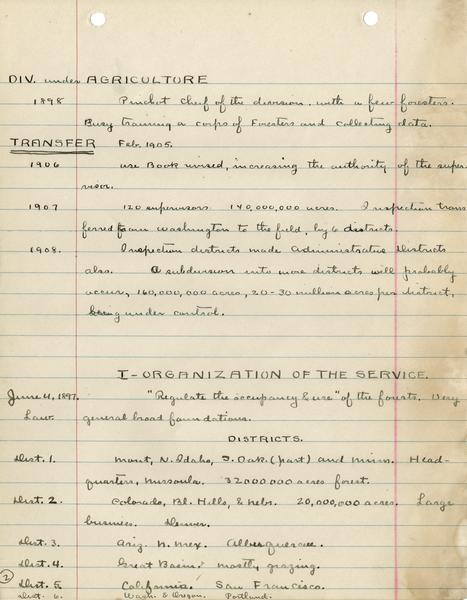 DIV. under AGRICULTURE
1898 Pinchot Chief of the division, with a few foresters.
Busy training a corps of Foresters and collecting data.
TRANSFER Feb. 1905.
1906 Use Book revised, increasing the authority of the super-
visor.
1907 120 supervisors 140,000,000 acres. Inspection trans
ferred from Washington to the field, by 6 districts.
1908. Inspection districts made Administrative Districts
also. A subdivision into more districts will probably
occur, 160,000,000 acres, 20-30 million acres per district,
being under control.
I-ORGANIZATION OF THE SERVICE.
June 4, 1897. "Regulate the occupancy & use" of the forests. Very
Law. general broad foundations.
DISTRICTS.
Dist. 1. Mont, N. Idaho, S. Dak. (part) and Minn. Head-
quarters, Missoula. 32000000 acres forest.
Dist. 2. Colorado, Bl. Hills, & Nebr. 20,000,000 acres. Large
business. Denver.
Dist. 3. Ariz. N. Mex. Albuquerque.
Dist. 4. Great Basin. mostly grazing.
2 Dist. 5. California. San Francisco.
Dist. 6. Wash. & Oregon. Portland.